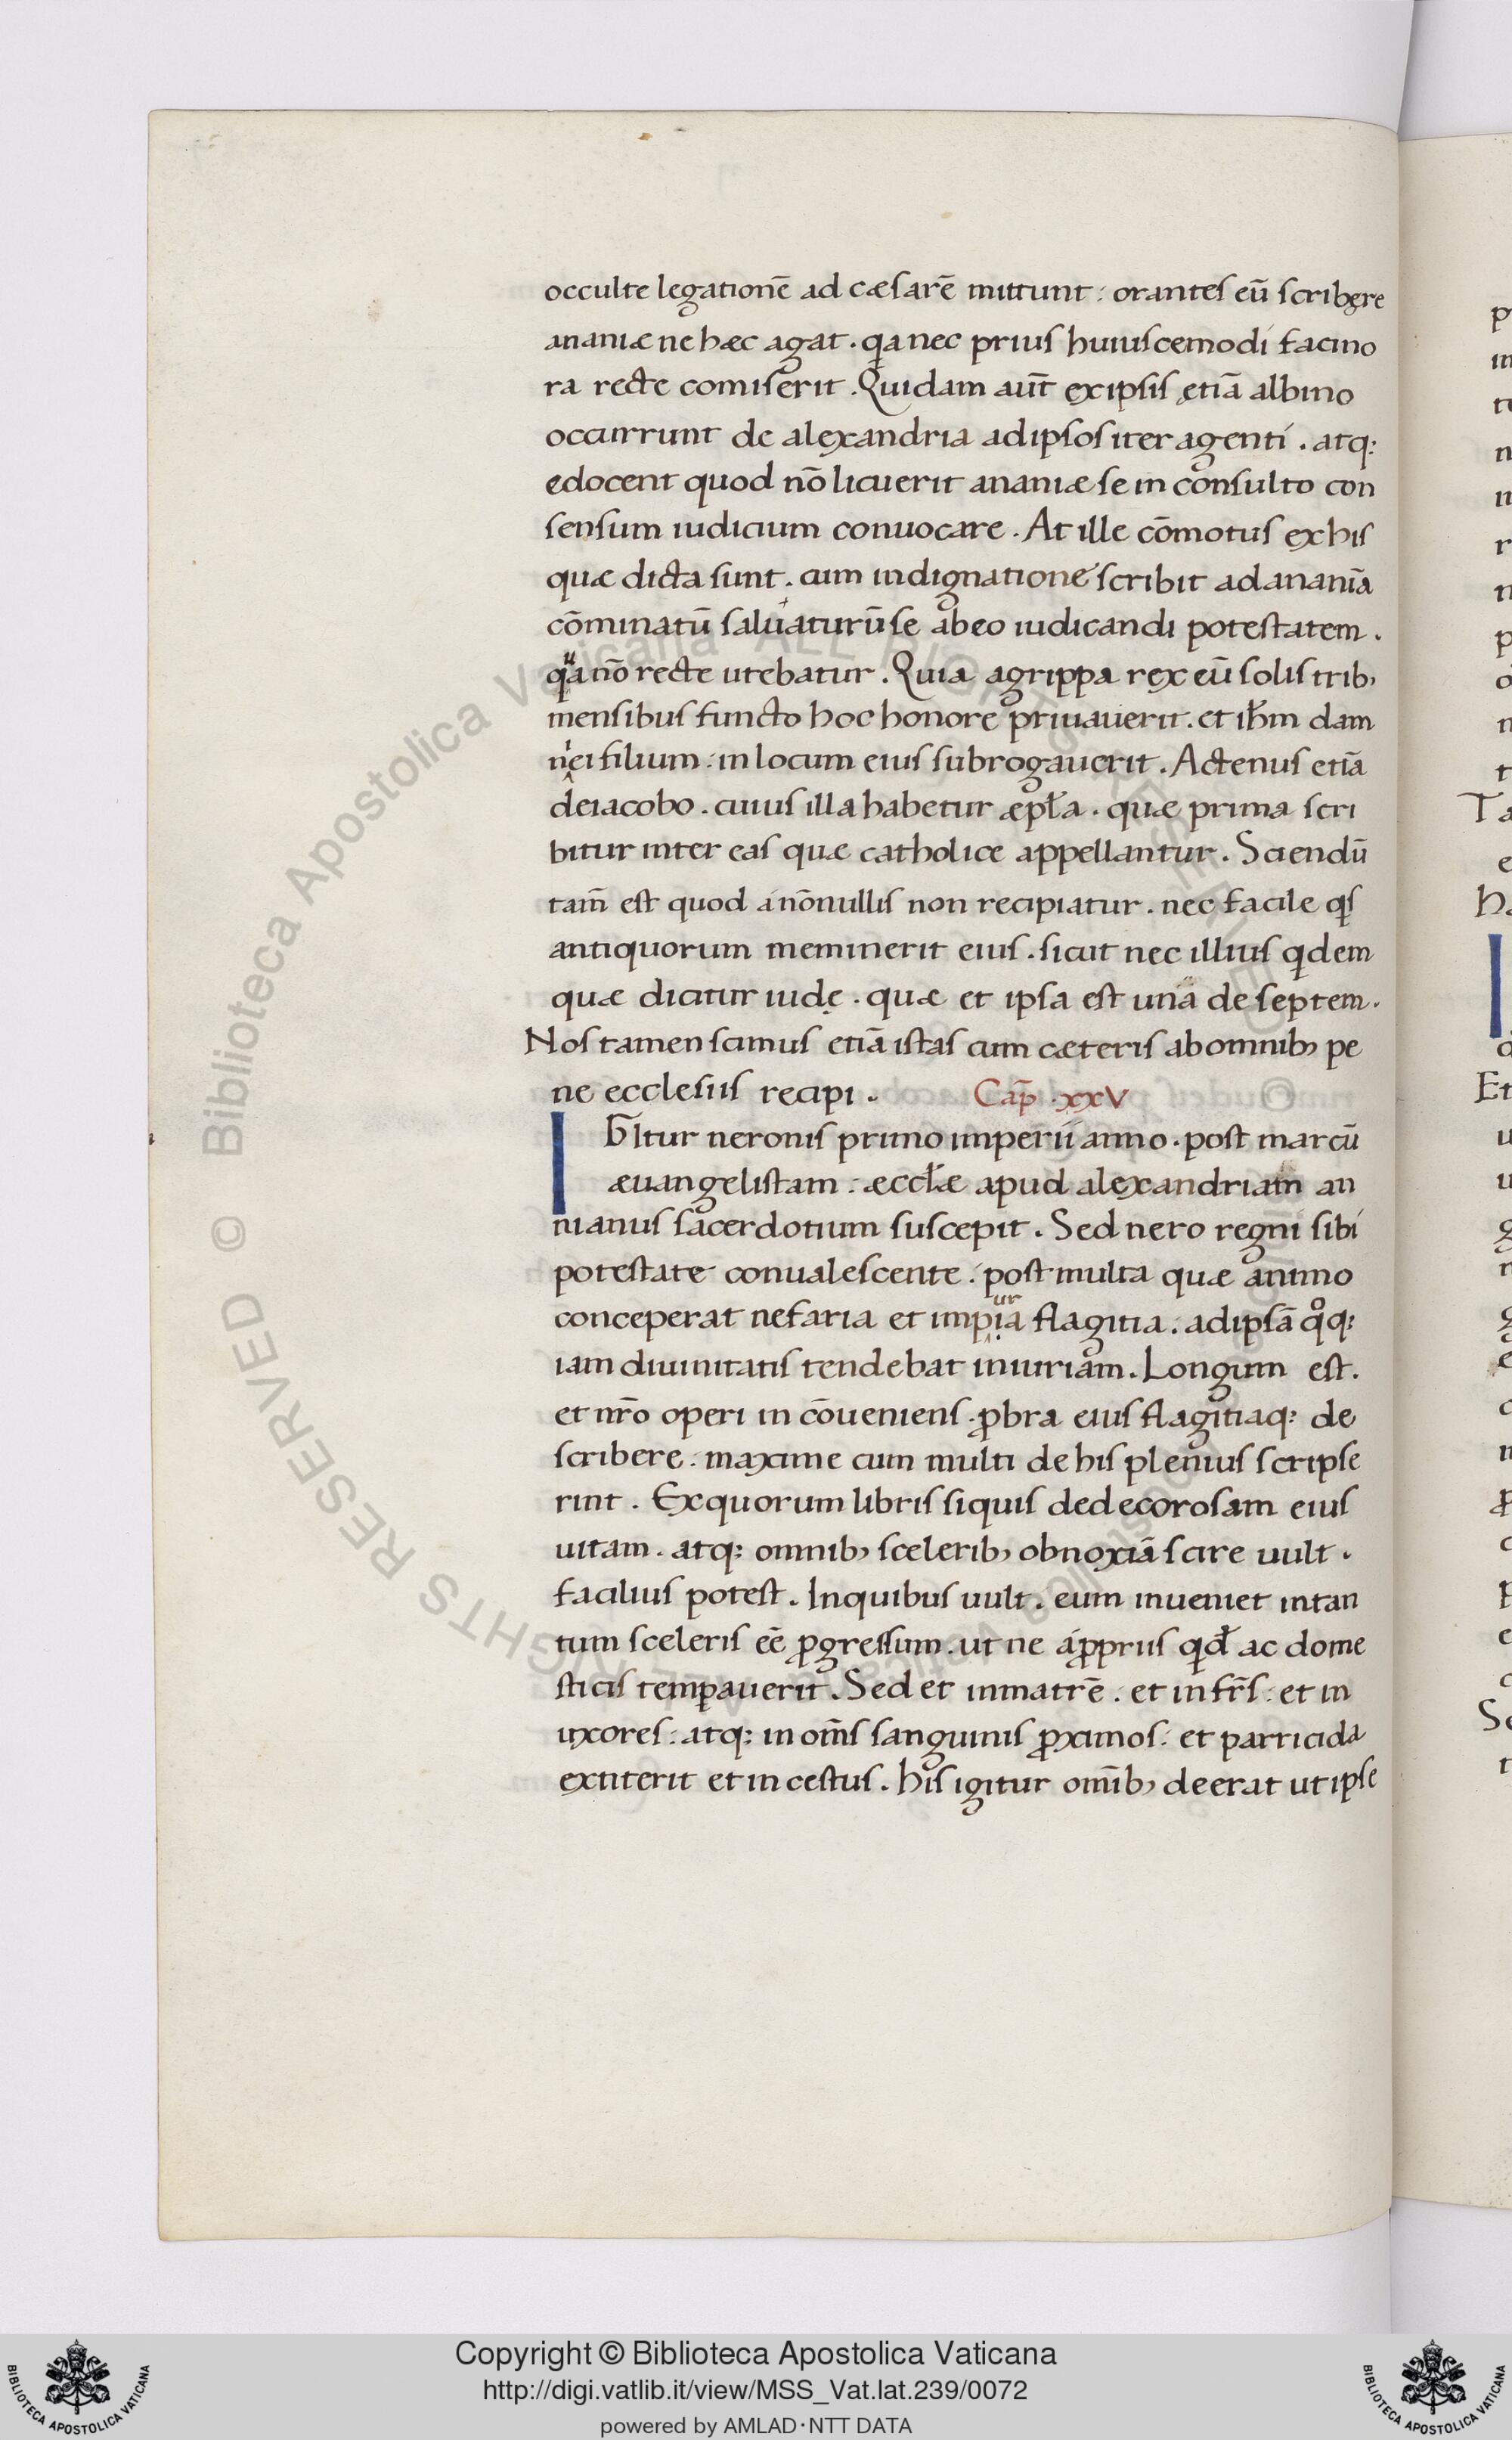 occulte legationē ad cæsarē mittunt : orantes eū scribere
ananiæ ne hæc agat . qa nec prius huiuscemodi facino
ra recte comiserit . Quidam aut̄ ex ipsis etiā albino
occurrunt de alexandria ad ipsos iter agenti . atq:
edocent quod nō licuerit ananiæ se in consulto con
sensum iudicium conuocare . At ille cōmotus ex his
quæ dicta sunt . cum indignatione scribit ad ananiā
cōminatū saluaturū se ab eo iudicandi potestatem .
qua nō recte utebatur . Quia agrippa rex eū solis trib,
mensibus functo hoc honore priuauerit . et ih̄m dam
niei filium : in locum eius subrogauerit . Actenus etiā
de iacobo . cuius illa habetur æpl̄a . quæ prima scri
bitur inter eas quæ catholice appellantur . Sciendū
tam̄ est quod a nōnullis non recipiatur . nec facile qs
antiquorum meminerit eius . sicut nec illius qdem
quæ dicitur iudę . quæ et ipsa est una de septem .
Nos tamen scimus etiā istas cum cæteris ab omnib, pe
ne ecclesiis recipi . Cap̄ . xxV
IGItur neronis primo imperii anno . post marcū
æuangelistam : æccl̄æ apud alexandriam an
nianus sacerdotium suscepit . Sed nero regni sibi
potestate conualescente : post multa quæ animo
conceperat nefaria et impura flagitia : ad ipsā qoq:
iam diuinitatis tendebat iniuriam . Longum est .
et nr̄o operi in cōueniens . ꝓbra eius flagitiaq: de
scribere : maxime cum multi de his plenius scripse
rint . Ex quorum libris siquis dedecorosam eius
uitam . atq: omnib, scelerib, obnoxiā scire uult .
facilius potest . In quibus uult . eum inueniet in tan
tum sceleris eē ꝓgressum . ut ne a ꝓpriis qd̄ ac dome
sticis tempauerit . Sed et in matrē : et in fr̄s : et in
uxores : atq: in om̄s sanguinis ꝓximos : et parricida
extiterit et incestus . his igitur omīb, deerat ut ipse
Copyright © Biblioteca Apostolica Vaticana
http://digi.vatlib.it/view/MSS_Vat.lat.239/0072
powered by AMLAD·NTT DATA